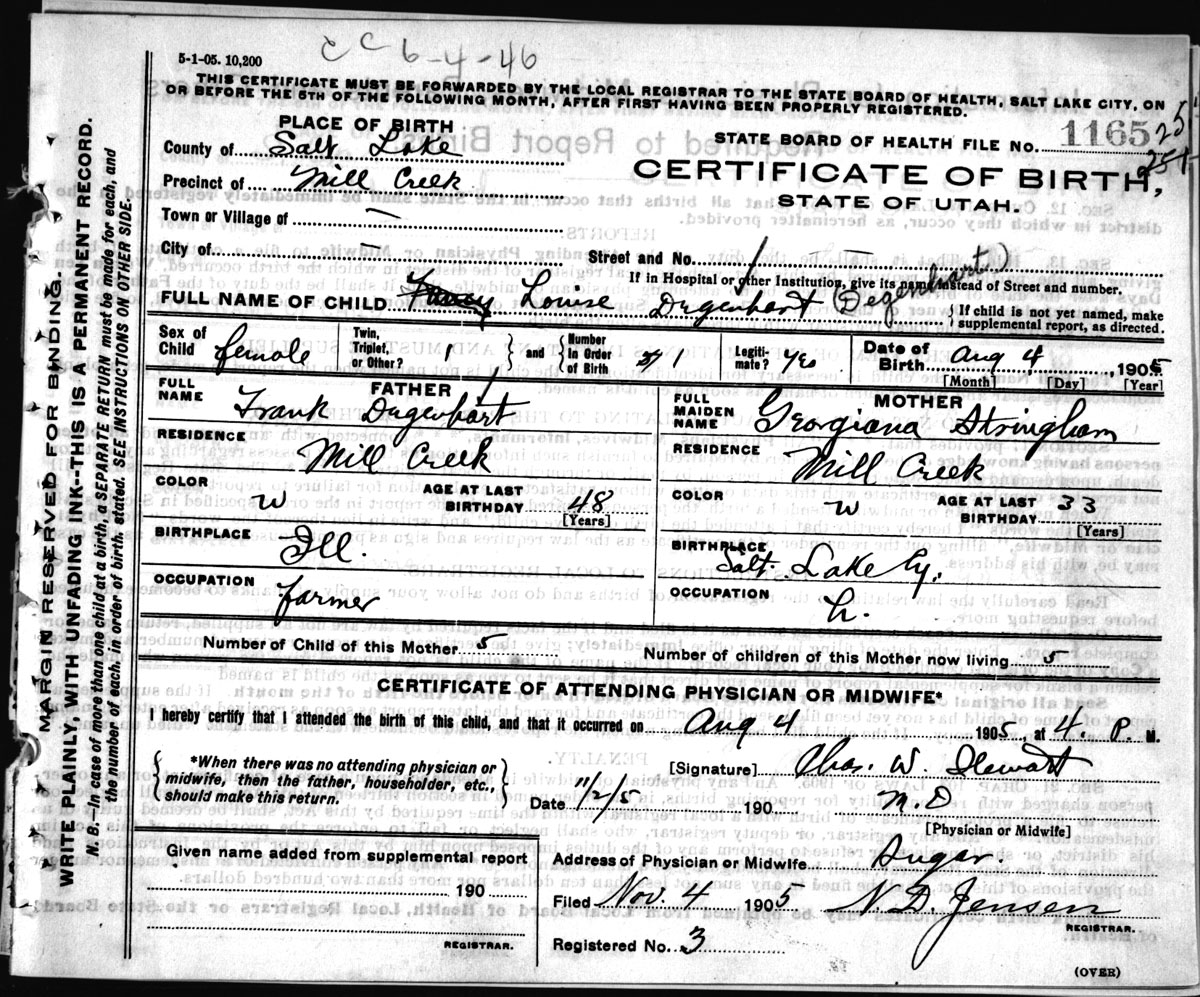 5-1-05. 10,200
CC 6-4-46
THIS CERTIFICATE MUST BE FORWARDED BY THE LOCAL REGISTRAR TO THE STATE BOARD OF HEALTH, SALT LAKE CITY, ON
OR BEFORE THE 5TH OF THE FOLLOWING MONTH, AFTER FIRST HAVING BEEN PROPERLY REGISTERED.
PLACE OF BIRTH
STATE BOARD OF HEALTH FILE NO. 1165 25
251
County of Salt Lake
CERTIFICATE OF BIRTH,
Precinct of Mill Creek
STATE OF UTAH.
Town or Village of —
City of —
Street and No.
If in Hospital or other Institution, give its name instead of Street and number.
FULL NAME OF CHILD Louise Dugenhart (Degenhart)
If child is not yet named, make
supplemental report, as directed.
Sex of Child female
Twin, Triplet, or Other? 1
and
Number In Order of Birth 1
Legiti-mate? Yes
Date of Birth Aug 4, 1905
[Month] [Day] [Year]
FATHER
FULL NAME Frank Dugenhart
RESIDENCE Mill Creek
COLOR W
AGE AT LAST BIRTHDAY 48
[Years]
BIRTHPLACE Ill.
OCCUPATION farmer
MOTHER
FULL MAIDEN NAME Georgiana Stringham
RESIDENCE Mill Creek
COLOR W
AGE AT LAST BIRTHDAY 33
[Years]
BIRTHPLACE Salt Lake Cy.
OCCUPATION h.
Number of Child of this Mother 5
Number of children of this Mother now living 5
CERTIFICATE OF ATTENDING PHYSICIAN OR MIDWIFE*
I hereby certify that I attended the birth of this child, and that it occurred on Aug 4 1905, at 4. P. M.
*When there was no attending physician or
midwife, then the father, householder, etc.,
should make this return.
[Signature] Chas. W. Stewart
Date 11/2/5 190 M.D
[Physician or Midwife]
Given name added from supplemental report
190
REGISTRAR.
Address of Physician or Midwife Sugar.
Filed Nov. 4 1905 N D Jensen
REGISTRAR.
Registered No. 3
(OVER)
MARGIN RESERVED FOR BINDING.
WRITE PLAINLY, WITH UNFADING INK--THIS IS A PERMANENT RECORD.
N. B.—In case of more than one child at a birth, a SEPARATE RETURN must be made for each, and
the number of each, in order of birth, stated. SEE INSTRUCTIONS ON OTHER SIDE.